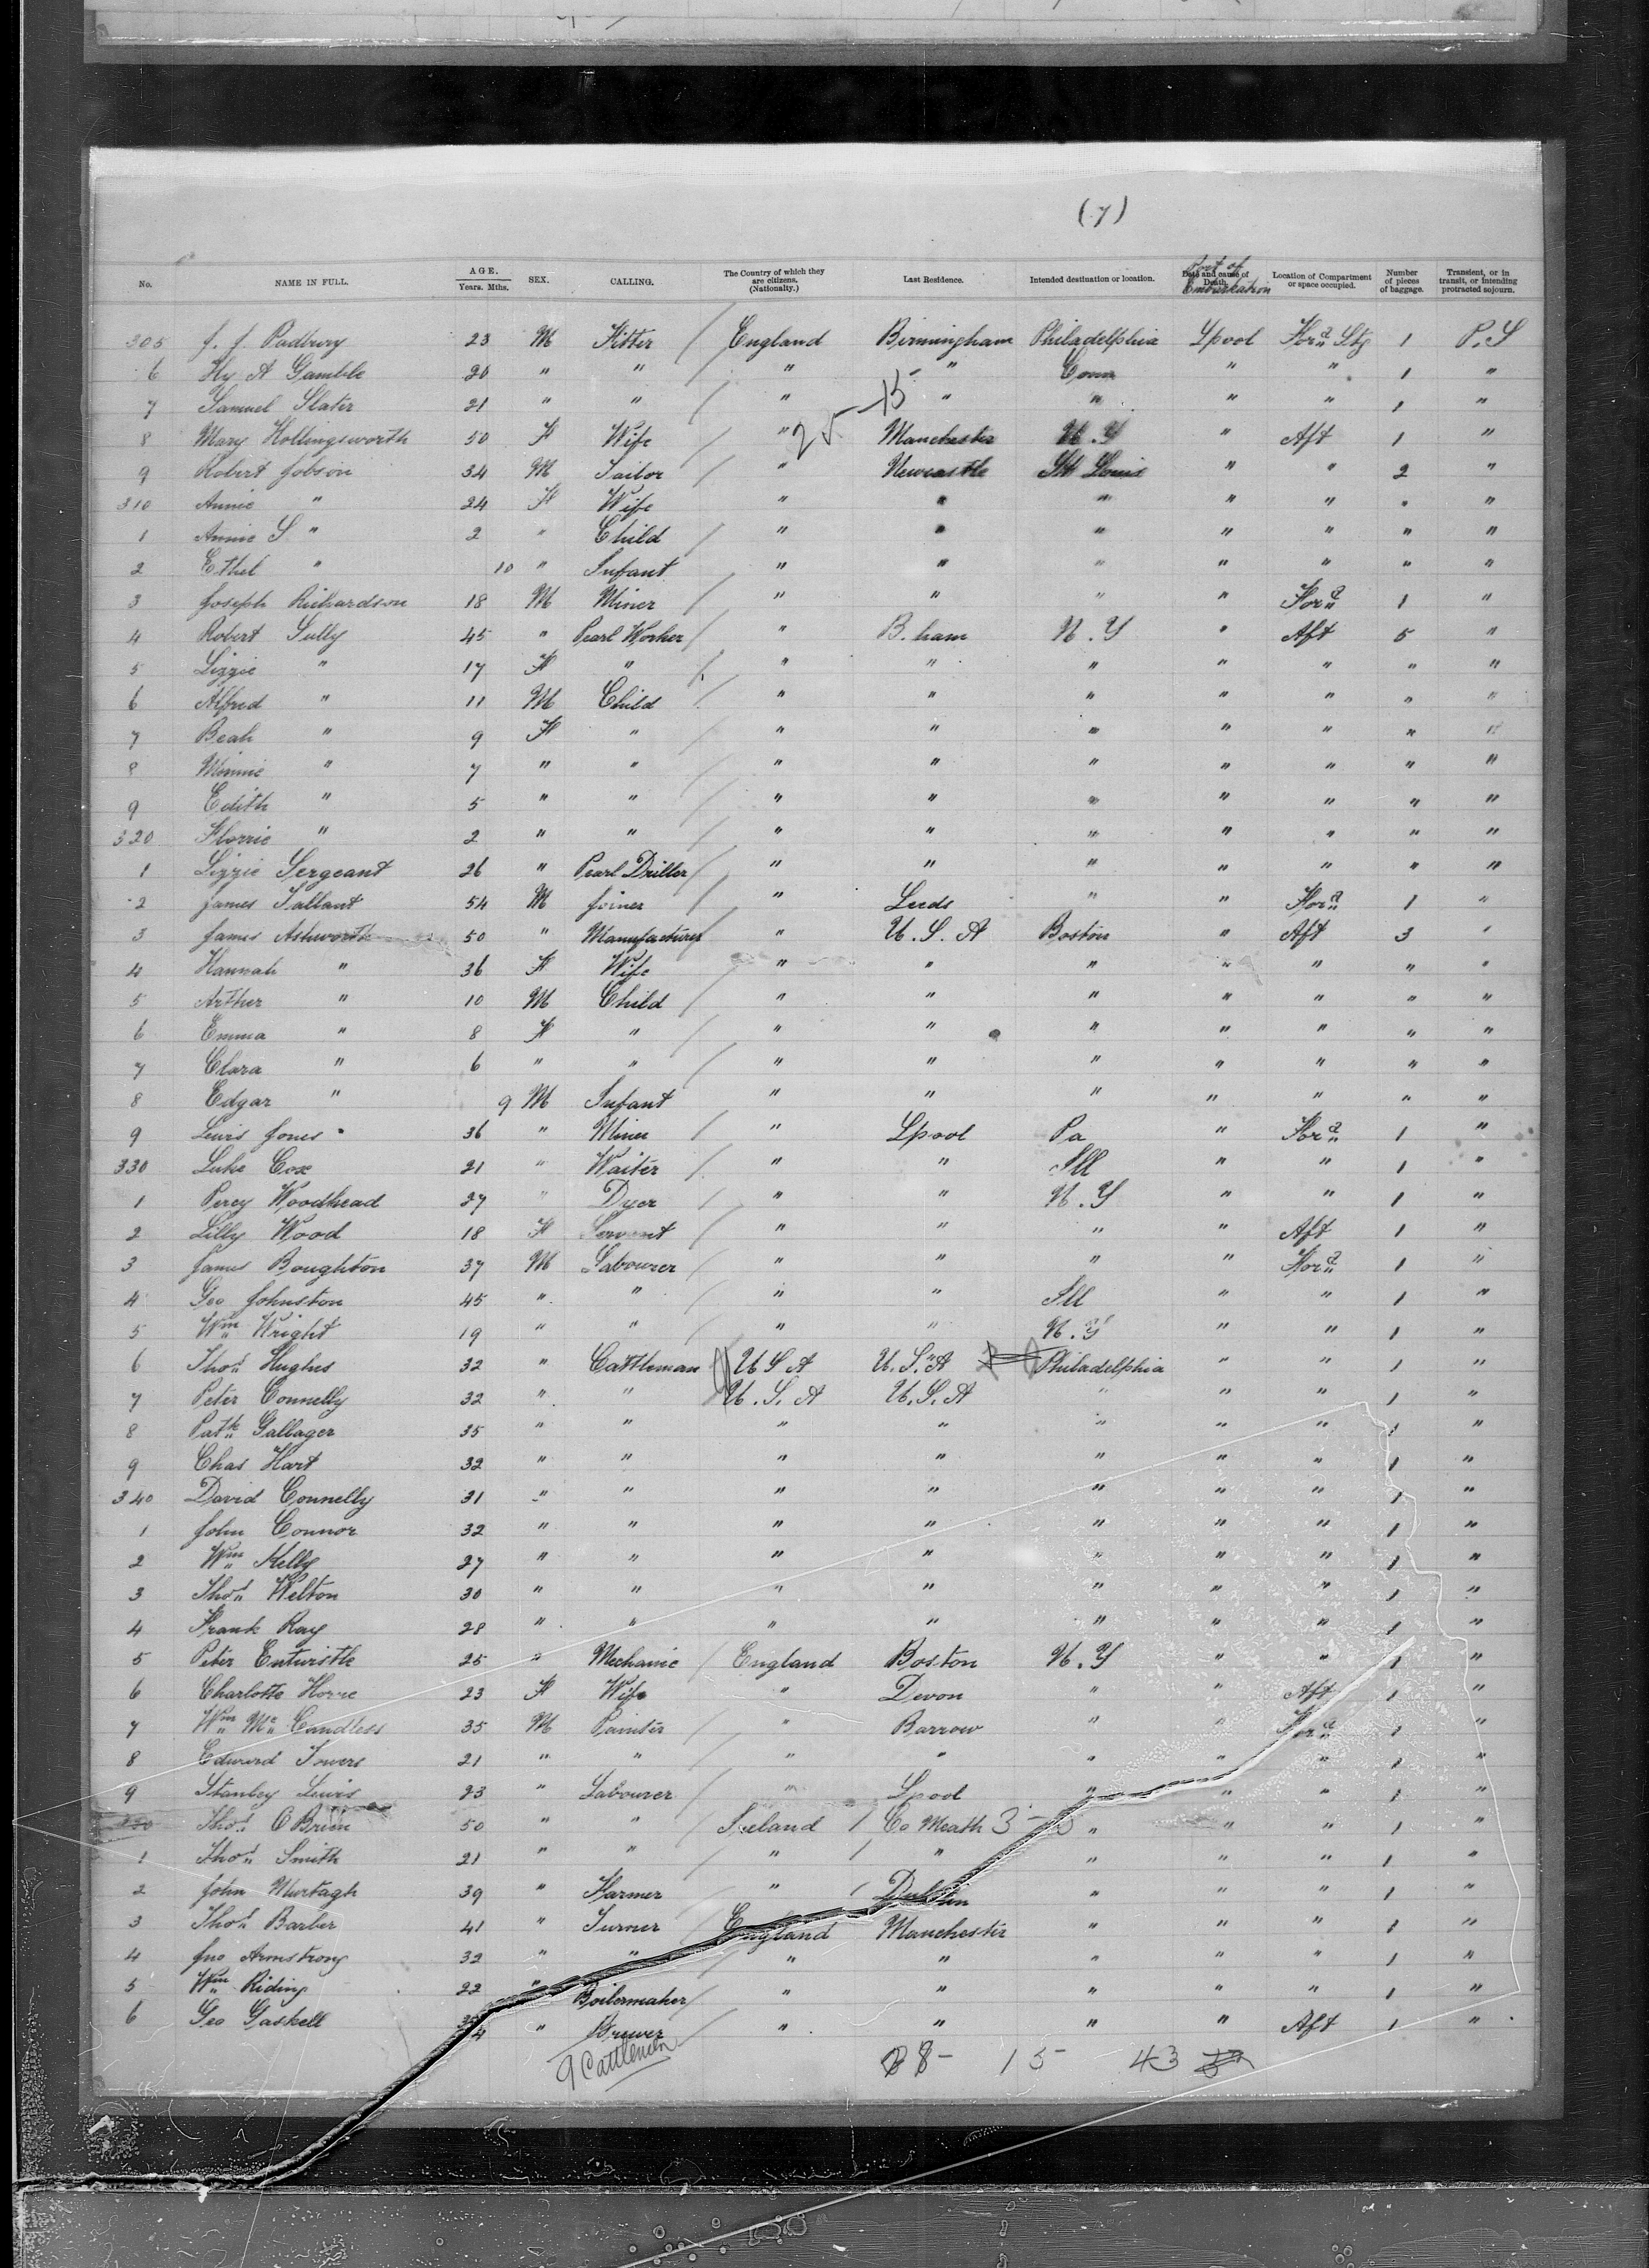 (7)
No. NAME IN FULL. AGE. Years. Mths. SEX. CALLING. The Country of which they are citizens. (Nationality.) Last Residence. Intended destination or location. Date and cause of Death. Port of Embarkation Location of Compartment or space occupied. Number of pieces of baggage. Transient, or in transit, or intending protracted sojourn.
305 J. J. Padbury 23 M Fitter / England Birmingham Philadelphia Lpool For'd Stg 1 P.S
6 Hy A Gamble 20 " " / " " Conn " " 1 "
7 Samuel Slater 21 " " / " " " " " 1 "
8 Mary Hollingsworth 50 F Wife / " Manchester N.Y " Aft 1 "
9 Robert Jobson 34 M Tailor / " Newcastle St Louis " " 2 "
310 Annie " 24 F Wife " " " " " " "
1 Annie S " 2 " Child / " " " " " " "
2 Ethel " 10 " Infant / " " " " " " "
3 Joseph Richardson 18 M Miner / " " " " For'd 1 "
4 Robert Sully 45 " Pearl Worker / " B.ham N.Y " Aft 5 "
5 Lizzie " 17 F " / " " " " " " "
6 Alfred " 11 M Child / " " " " " " "
7 Beah " 9 F " / " " " " " " "
8 Minnie " 7 " " / " " " " " " "
9 Edith " 5 " " / " " " " " " "
320 Florrie " 2 " " / " " " " " " "
1 Lizzie Sergeant 26 " Pearl Driller / " " " " " " "
2 James Tallant 54 M Joiner / " Leeds " " For'd 1 "
3 James Ashworth 50 " Manufacturer " U.S.A Boston " Aft 3 "
4 Hannah " 36 F Wife / " " " " " " "
5 Arther " 10 M Child / " " " " " " "
6 Emma " 8 F " / " " " " " " "
7 Clara " 6 " " / " " " " " " "
8 Edgar " 9 M Infant " " " " " " "
9 Lewis Jones 36 " Miner / " Lpool Pa " For'd 1 "
330 Luke Cox 21 " Waiter / " " Ill " " 1 "
1 Percy Woodhead 27 " Dyer / " " N.Y " " 1 "
2 Lilly Wood 18 F Servant / " " " " Aft 1 "
3 James Boughton 37 M Labourer / " " " " For'd 1 "
4 Geo Johnston 45 " " / " " Ill " " 1 "
5 Wm Wright 19 " " / " " N.Y " " 1 "
6 Thos Hughes 32 " Cattleman U S A U.S.A Philadelphia " " 1 "
7 Peter Connelly 32 " " U.S.A U.S.A " " " 1 "
8 Patk Gallager 35 " " " " " " " 1 "
9 Chas Hart 32 " " " " " " " 1 "
340 David Connelly 31 " " " " " " " 1 "
1 John Connor 32 " " " " " " " 1 "
2 Wm Kelly 27 " " " " " " " 1 "
3 Thos Welton 30 " " " " " " " 1 "
4 Frank Ray 28 " " " " " " " 1 "
5 Peter Entwistle 25 " Mechanic / England Boston N.Y " " 1 "
6 Charlotte Horre 23 F Wife " Devon " " Aft 1 "
7 Wm McCandless 35 M Painter / " Barrow " " For'd 1 "
8 Edward Towers 21 " " / " " " " " 1 "
9 Stanley Lewis 23 " Labourer / " Lpool " " " 1 "
350 Thos O Brien 50 " " / Ireland / Co Meath " " " 1 "
1 Thos Smith 21 " " / " / " " " " 1 "
2 John Murtagh 39 " Farmer " / Dublin " " " 1 "
3 Thos Barber 41 " Turner England Manchester " " " 1 "
4 Jno Armstrong 32 " " / " " " " " 1 "
5 Wm Riding 22 " Boilermaker / " " " " " 1 "
6 Geo Gaskell " Brewer " " " " Aft 1 "
9 Cattlemen 15 43